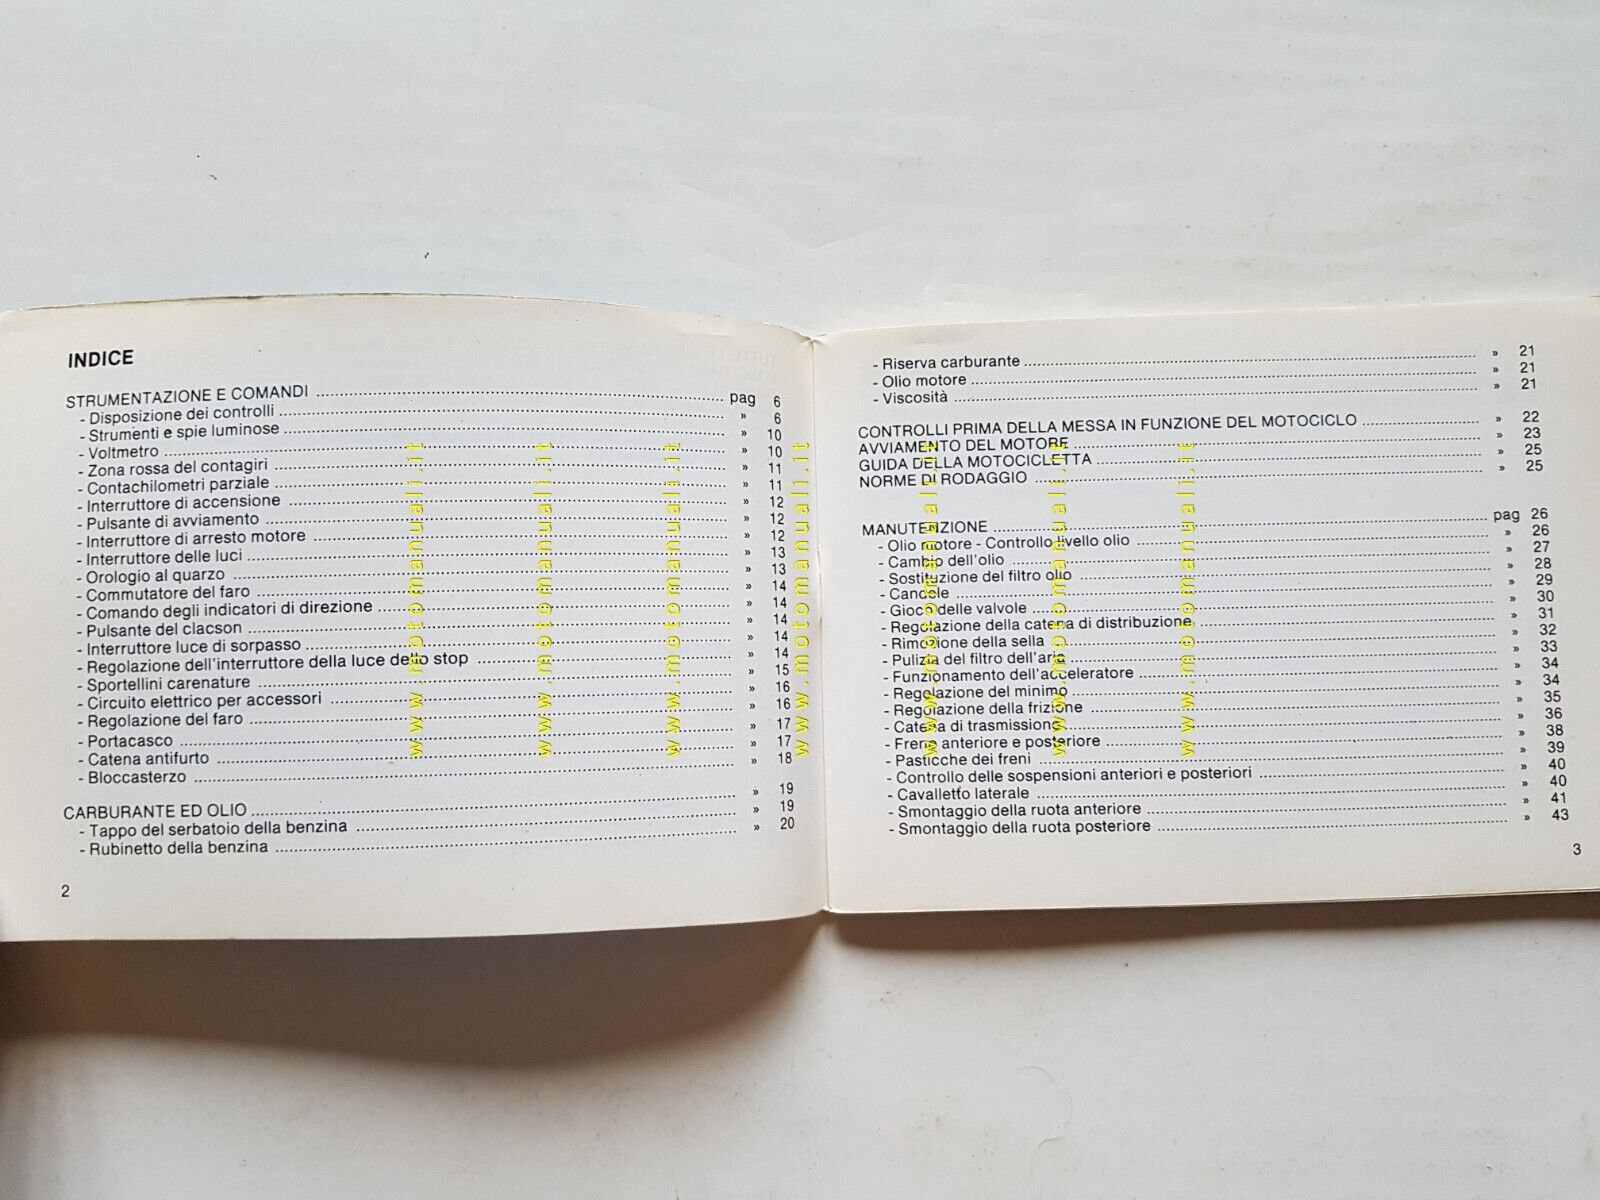 INDICE
STRUMENTAZIONE E COMANDI ........ pag 6
- Disposizione dei controlli ........ » 6
- Strumenti e spie luminose ........ » 10
- Voltmetro ........ » 10
- Zona rossa del contagiri ........ » 11
- Contachilometri parziale ........ » 11
- Interruttore di accensione ........ » 12
- Pulsante di avviamento ........ » 12
- Interruttore di arresto motore ........ » 12
- Interruttore delle luci ........ » 13
- Orologio al quarzo ........ » 13
- Commutatore del faro ........ » 14
- Comando degli indicatori di direzione ........ » 14
- Pulsante del clacson ........ » 14
- Interruttore luce di sorpasso ........ » 14
- Regolazione dell'interruttore della luce dello stop ........ » 14
- Sportellini carenature ........ » 15
- Circuito elettrico per accessori ........ » 16
- Regolazione del faro ........ » 16
- Portacasco ........ » 17
- Catena antifurto ........ » 17
- Bloccasterzo ........ » 18
CARBURANTE ED OLIO ........ » 19
- Tappo del serbatoio della benzina ........ » 19
- Rubinetto della benzina ........ » 20
2
- Riserva carburante ........ » 21
- Olio motore ........ » 21
- Viscosità ........ » 21
CONTROLLI PRIMA DELLA MESSA IN FUNZIONE DEL MOTOCICLO ........ » 22
AVVIAMENTO DEL MOTORE ........ » 23
GUIDA DELLA MOTOCICLETTA ........ » 25
NORME DI RODAGGIO ........ » 25
MANUTENZIONE ........ pag 26
- Olio motore - Controllo livello olio ........ » 26
- Cambio dell'olio ........ » 27
- Sostituzione del filtro olio ........ » 28
- Candele ........ » 29
- Gioco delle valvole ........ » 30
- Regolazione della catena di distribuzione ........ » 31
- Rimozione della sella ........ » 32
- Pulizia del filtro dell'aria ........ » 33
- Funzionamento dell'acceleratore ........ » 34
- Regolazione del minimo ........ » 34
- Regolazione della frizione ........ » 35
- Catena di trasmissione ........ » 36
- Freno anteriore e posteriore ........ » 38
- Pasticche dei freni ........ » 39
- Controllo delle sospensioni anteriori e posteriori ........ » 40
- Cavalletto laterale ........ » 40
- Smontaggio della ruota anteriore ........ » 41
- Smontaggio della ruota posteriore ........ » 43
3
www.motomanuali.it
www.motomanuali.it
www.motomanuali.it
www.motomanuali.it
www.motomanuali.it
www.motomanuali.it
www.motomanuali.it